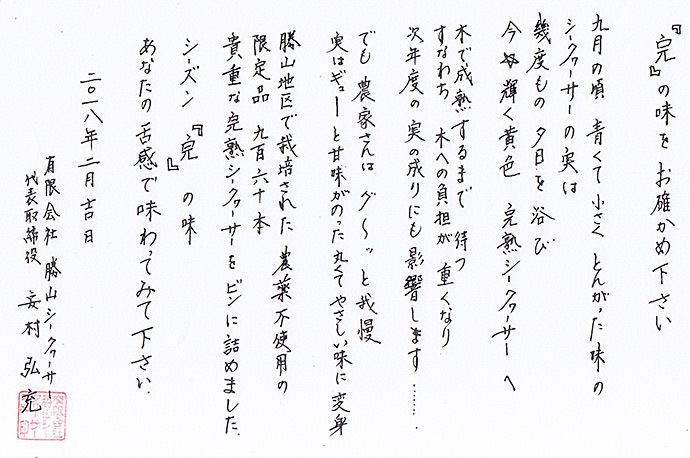 『完』の味を お確かめ下さい
九月の頃 青くて 小さく とんがった 味の
シークヮーサーの実は
幾度もの 夕日を 浴び
今 輝く黄色 完熟シークヮーサーへ
木で成熟するまで 待つ
すなわち 木への負担が 重くなり
次年度の 実の成りにも 影響します………
でも 農家さんは グ〜ッと我慢
実はギューと甘味がのった丸くてやさしい味に変身
勝山地区で栽培された 農薬不使用の
限定品 九百六十本
貴重な完熟シークヮーサーを ビンに詰めました.
シーズン 『完』 の味
あなたの舌感で味わってみて下さい.
二〇一八年二月吉日
有限会社 勝山シークヮーサー
代表取締役 安村 弘充